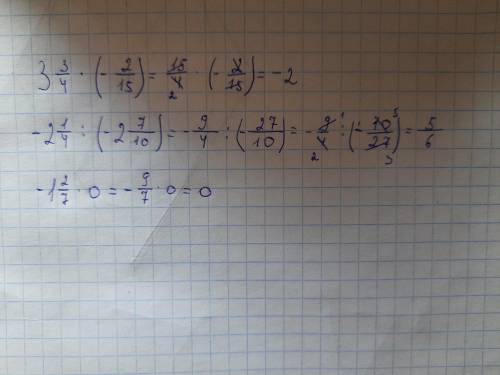 3 3/4 · (- 2/15) = 15/4 2 · (- 2/15) = -2
-2 1/4 : (-2 7/10) = - 9/4 : (- 27/10) = - 9/4 1 2 : (- 10/27) 5 3 = 5/6
-1 2/7 · 0 = - 9/7 · 0 = 0